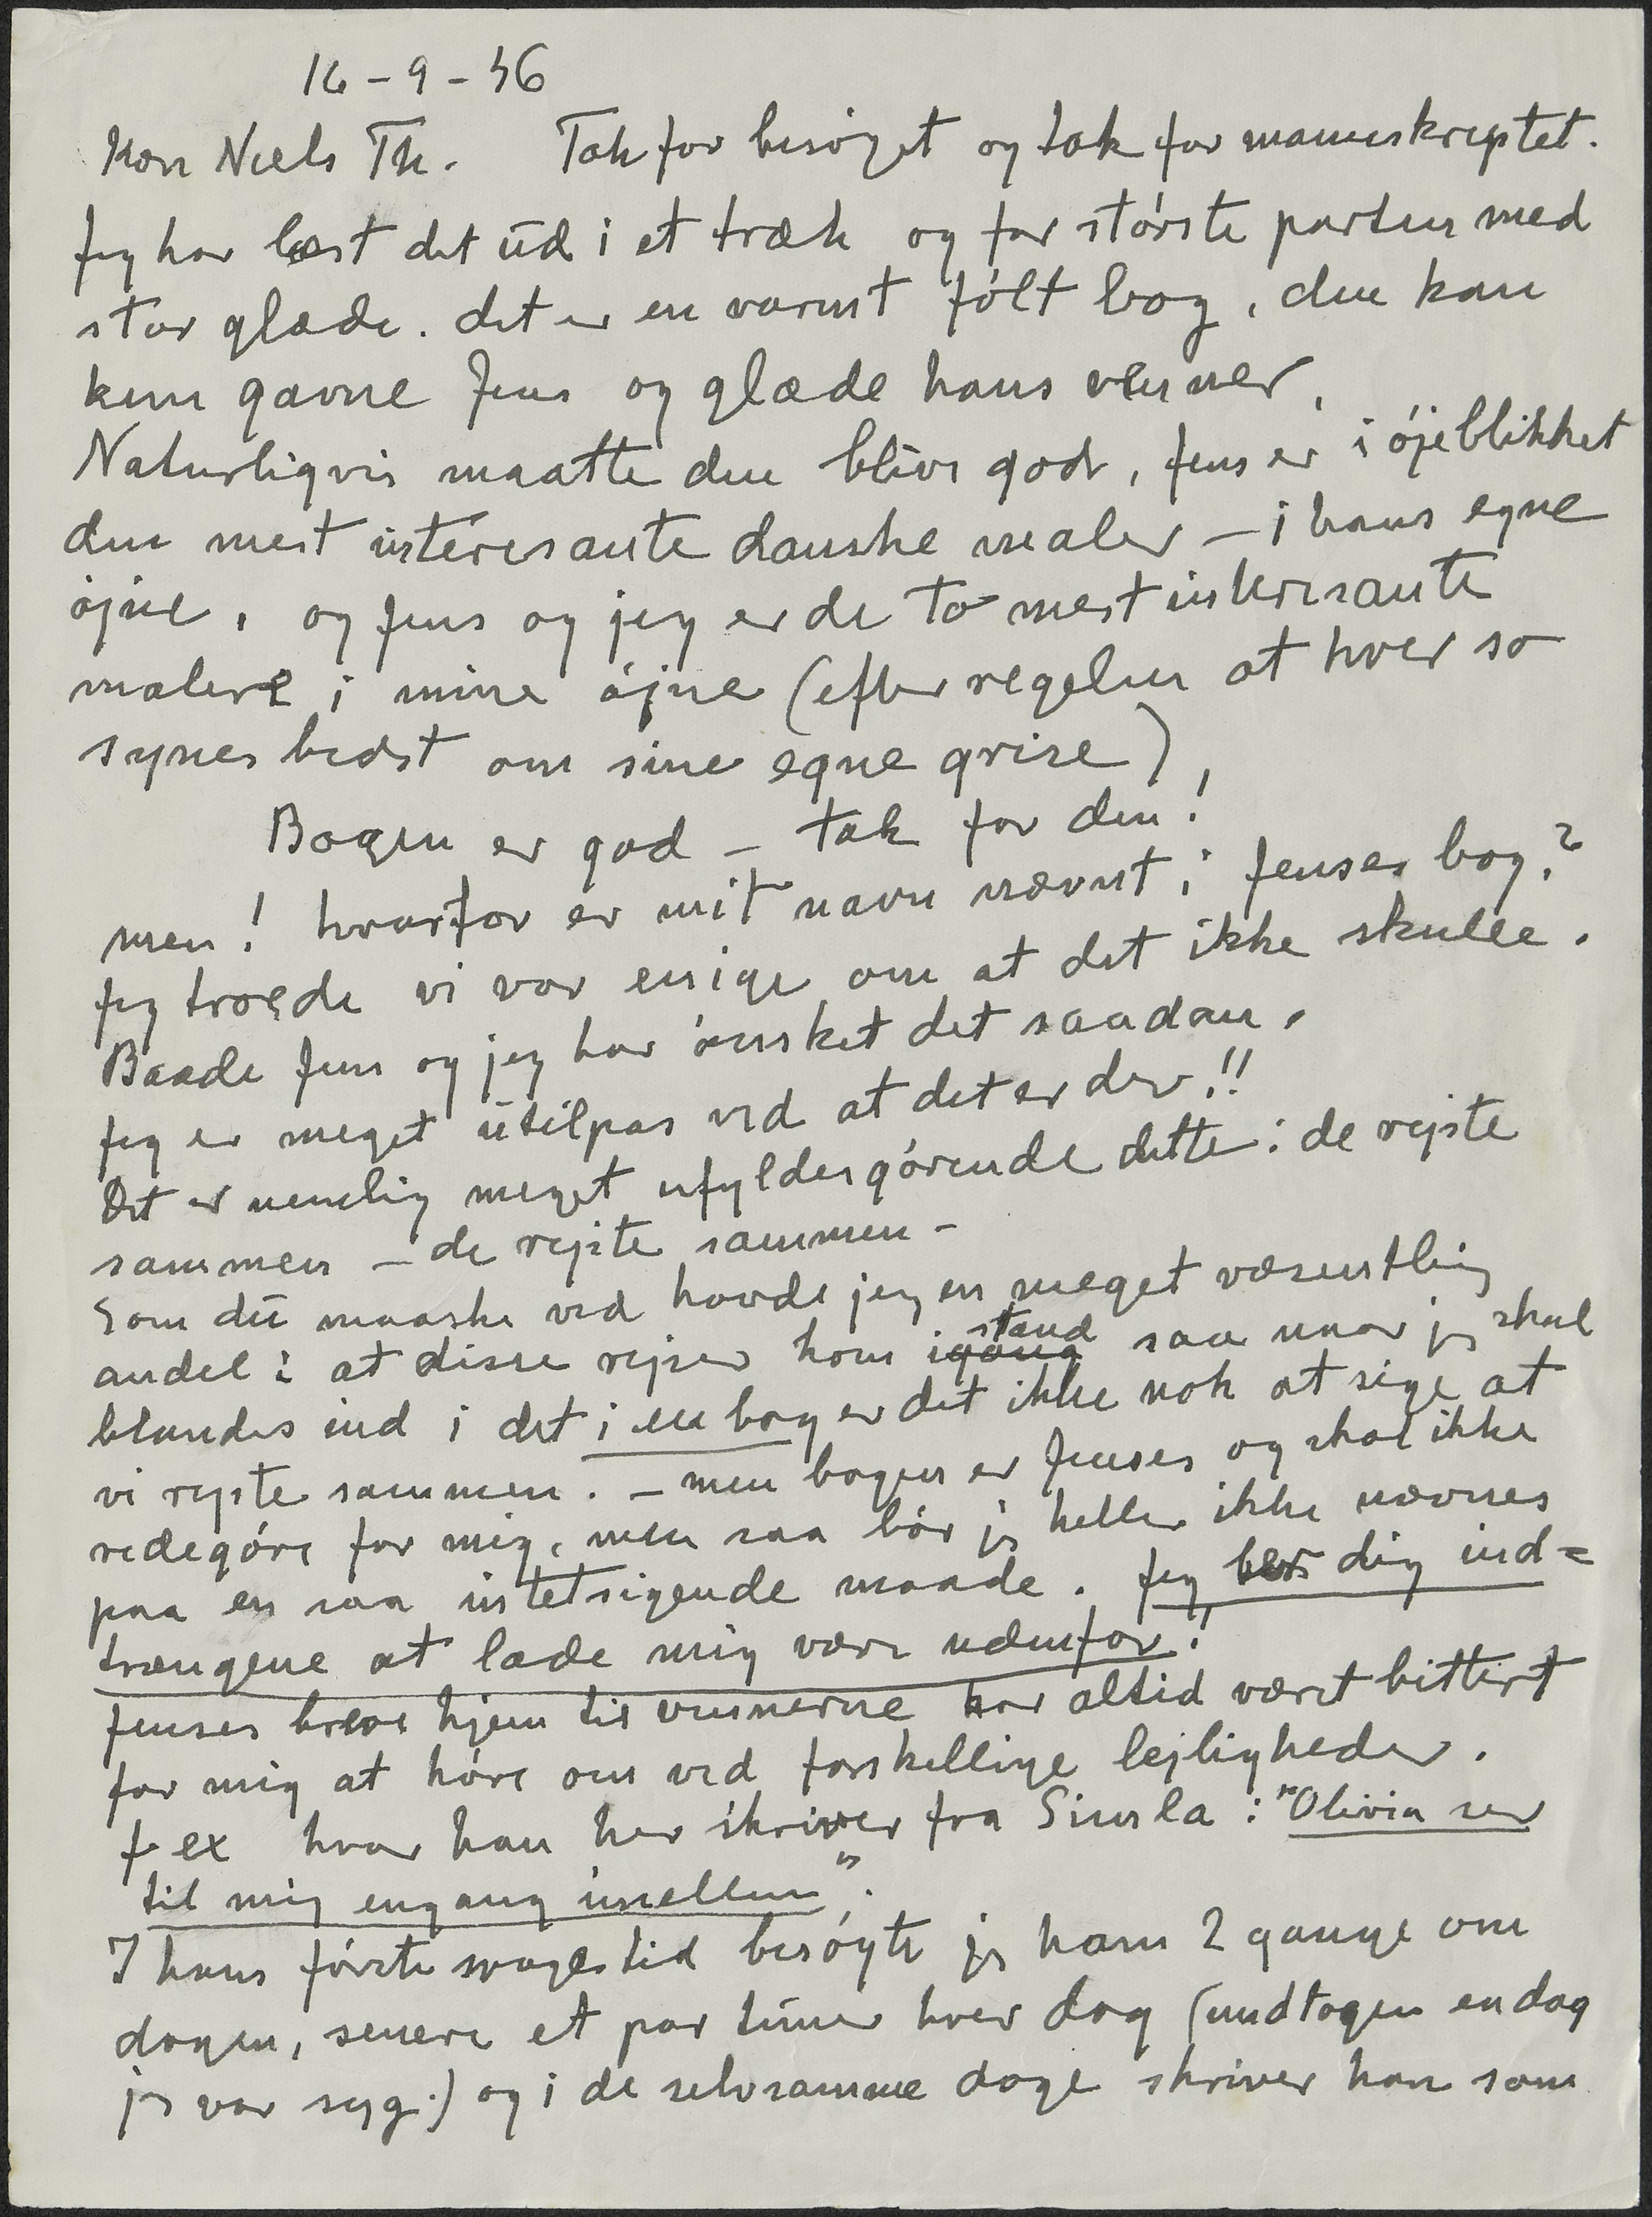 16-9-56
Kære Niels Th. Tak for besøget og tak for manuskriptet.
Jeg har læst det ud i et træk og for største parten med
stor glæde. det er en varmt følt bog, den kan
kun gavne Jens og glæde hans venner.
Naturligvis maatte den blive god, Jens er i øjeblikket
den mest interesante danske maler – i hans egne
øjne, og Jens og jeg er de to mest interesante
malere i mine øjne (efter regelen at hver so
synes bedst om sine egne grise),
Bogen er god – tak for den!
men! hvorfor er mit navn nævnt i Jenses bog?
Jeg troede vi var enige om at det ikke skulle.
Baade Jens og jeg har ønsket det saadan.
Jeg er meget utilpas ved at det er der!!
Det er nemlig meget ufyldesgørende dette: de rejste
sammen – de rejste sammen –
Som du maaske ved havde jeg en meget væsentlig
andel i at disse rejser kom igang stand saa naar jeg skal
blandes ind i det i en bog er det ikke nok at sige at
vi rejste sammen. – men bogen er Jenses og skal ikke
redegøre for mig, men saa bør jeg heller ikke nævnes
paa en saa intetsigende maade. Jeg ber dig ind=
trængene at lade mig være udenfor!
Jenses breve hjem til vennerne har altid været bittert
for mig at høre om ved forskellige lejligheder.
f ex hvor han her skriver fra Simla: "Olivia ser
til mig engang imellem".
I hans første sygestid besøgte jeg ham 2 gange om
dagen, senere et par timer hver dag (undtagen en dag
jeg var syg.) og i de selvsamme dage skriver han som